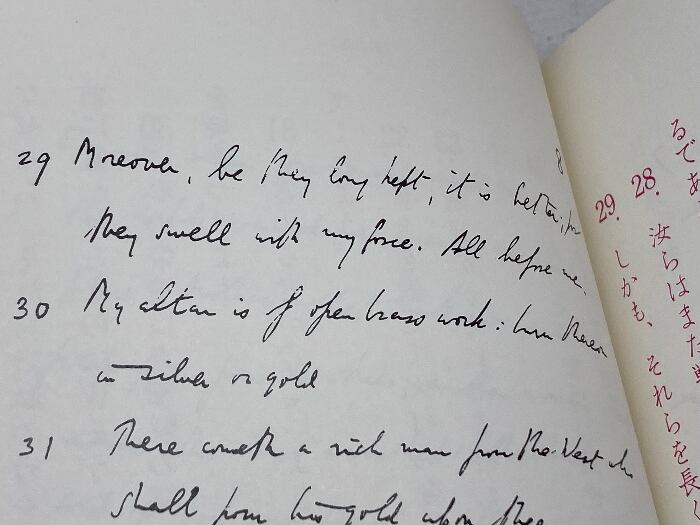 29 Moreover, be they long kept, it is better; for
they swell with my force. All before me.
30 My altar is of open brass work: burn thereon
in silver or gold
31 There cometh a rich man from the West who
shall pour his gold upon thee
8
るであ
28. 汝らはまた
29. しかも、それらを長し